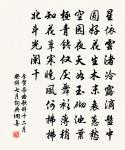 星依雲渚冷露滴盤中
圓好花生木末衰蕙愁
空園夜天如玉砌池葉
極青錢僅厭舞衫薄稍
知花簟寒曉風何拂拂
北斗光闌干